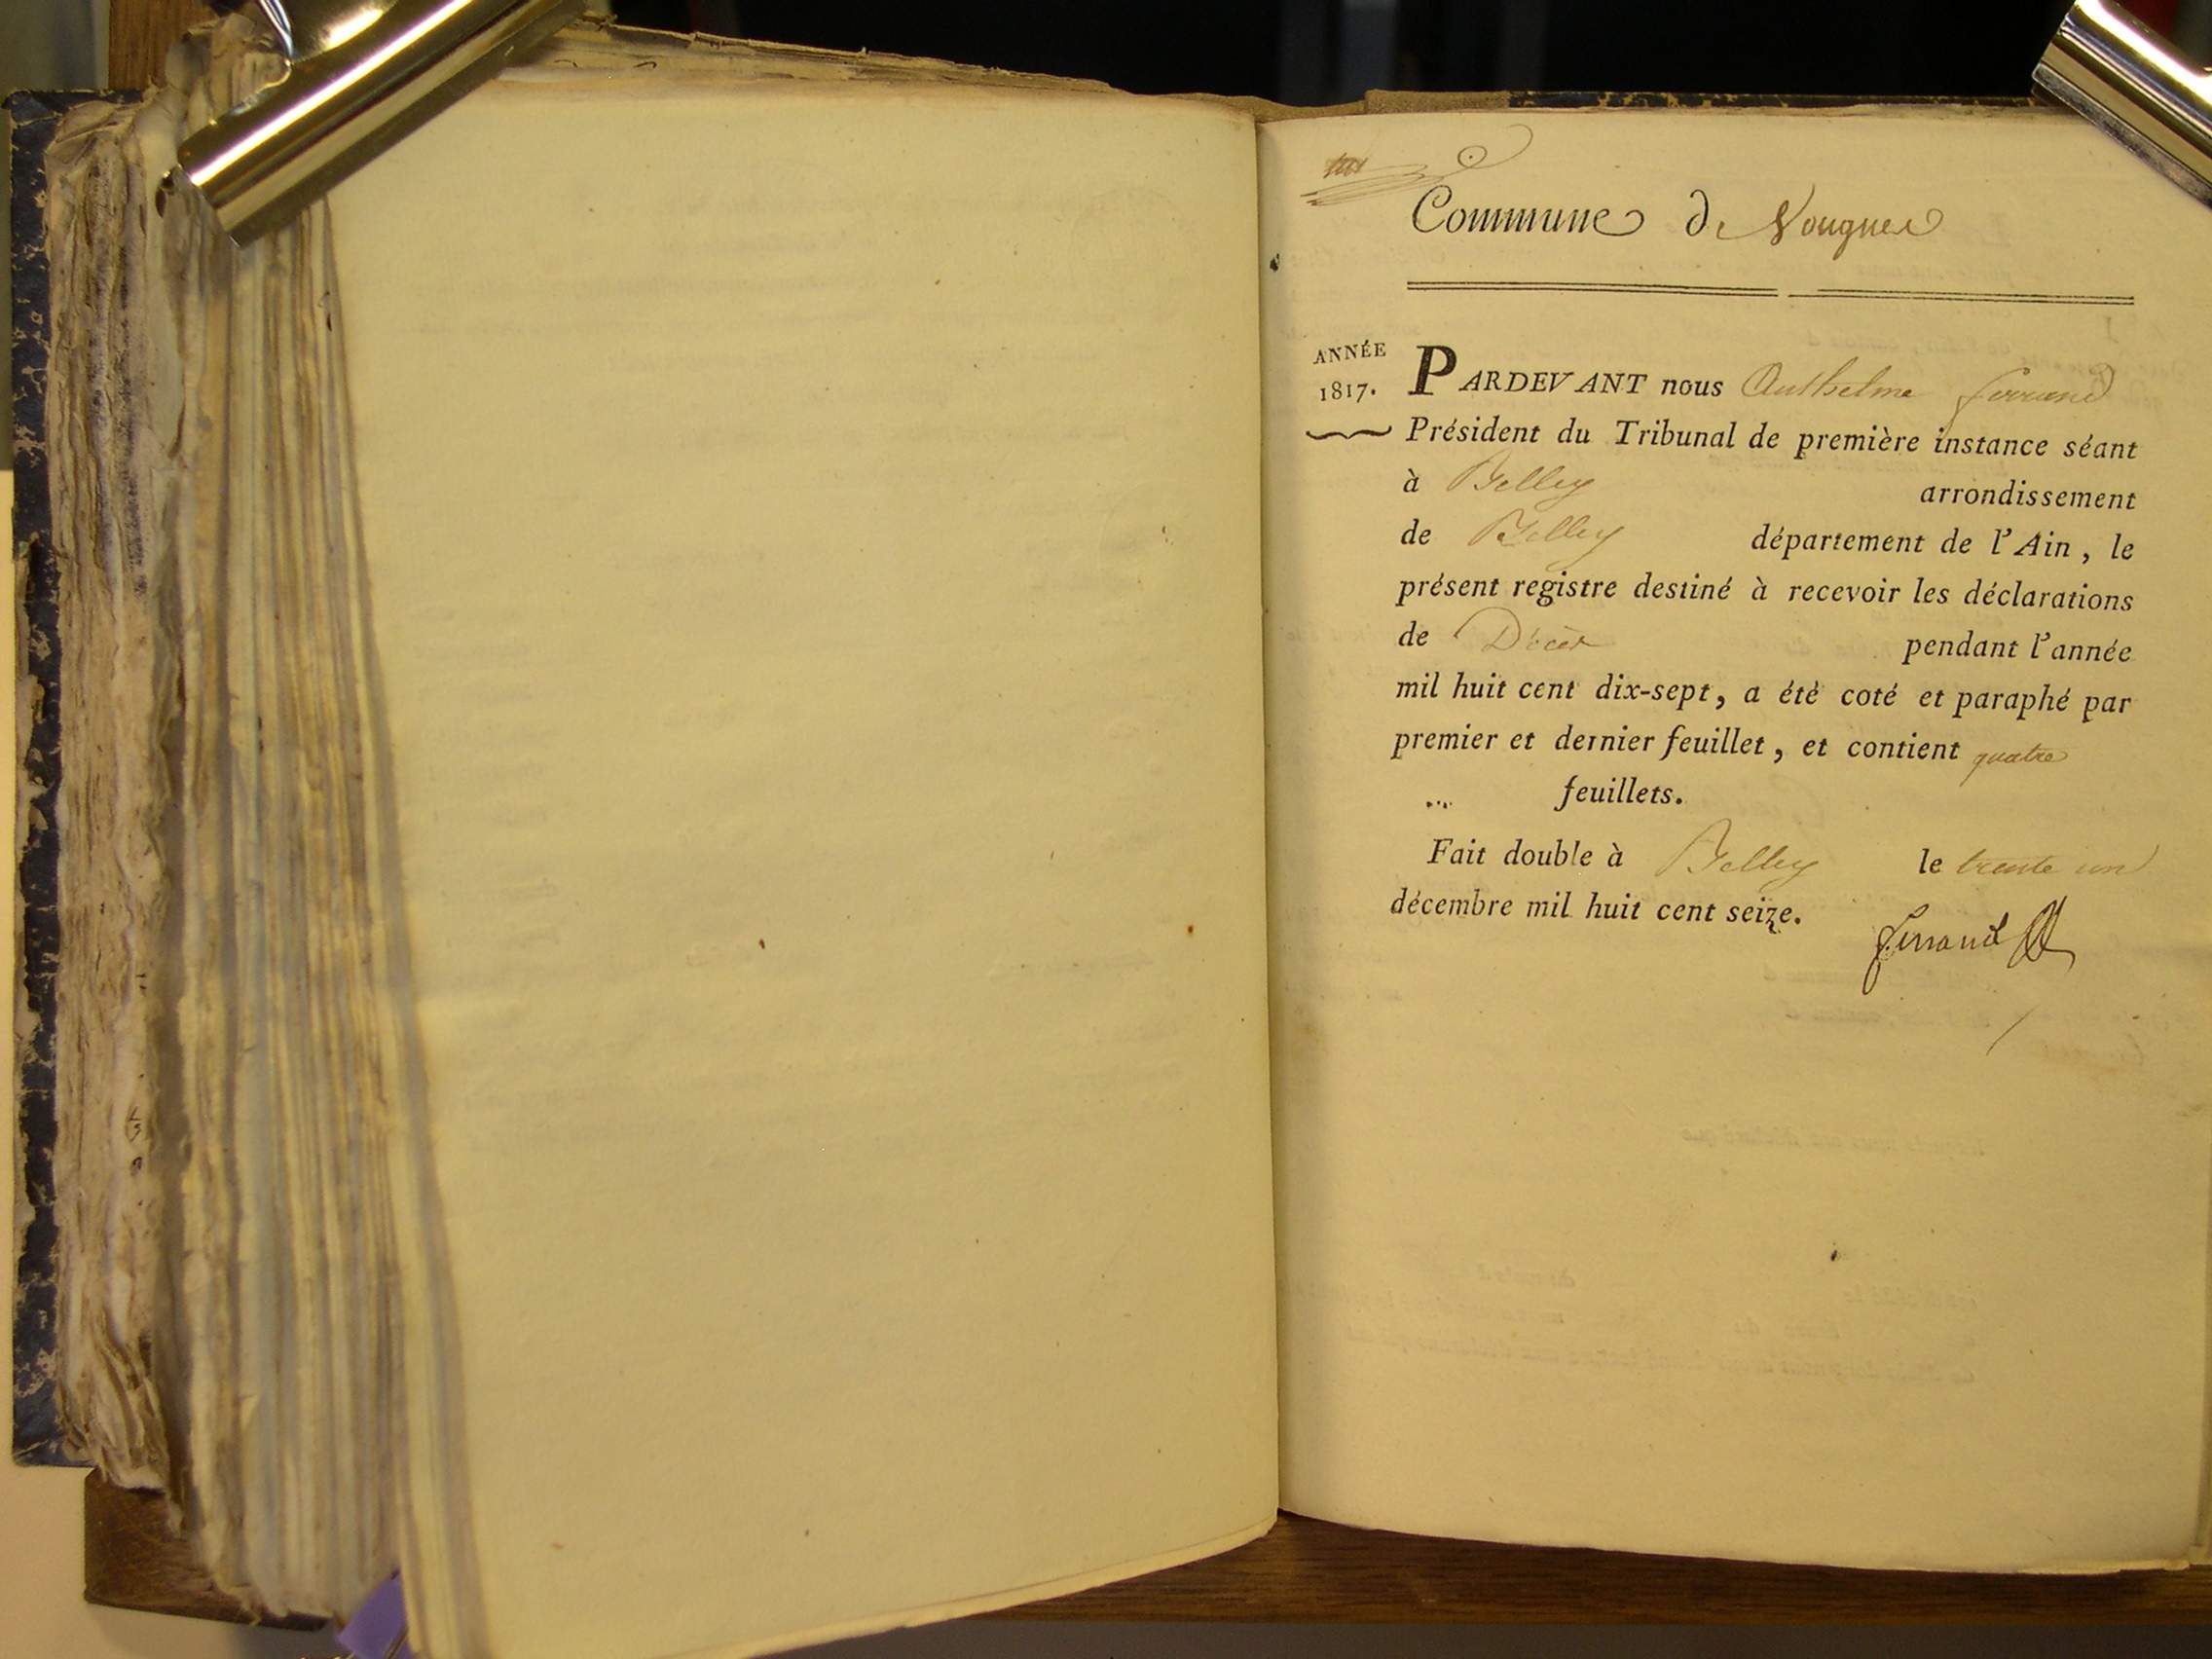 Commune de Vougnes
ANNÉE
1817.
PARDEVANT nous Anthelme ferrand
Président du Tribunal de première instance séant
à Belley arrondissement
de Belley département de l'Ain, le
présent registre destiné à recevoir les déclarations
de Décès pendant l'année
mil huit cent dix-sept, a été coté et paraphé par
premier et dernier feuillet, et contient quatre
feuillets.
Fait double à Belley le trente un
décembre mil huit cent seize.
ferrand